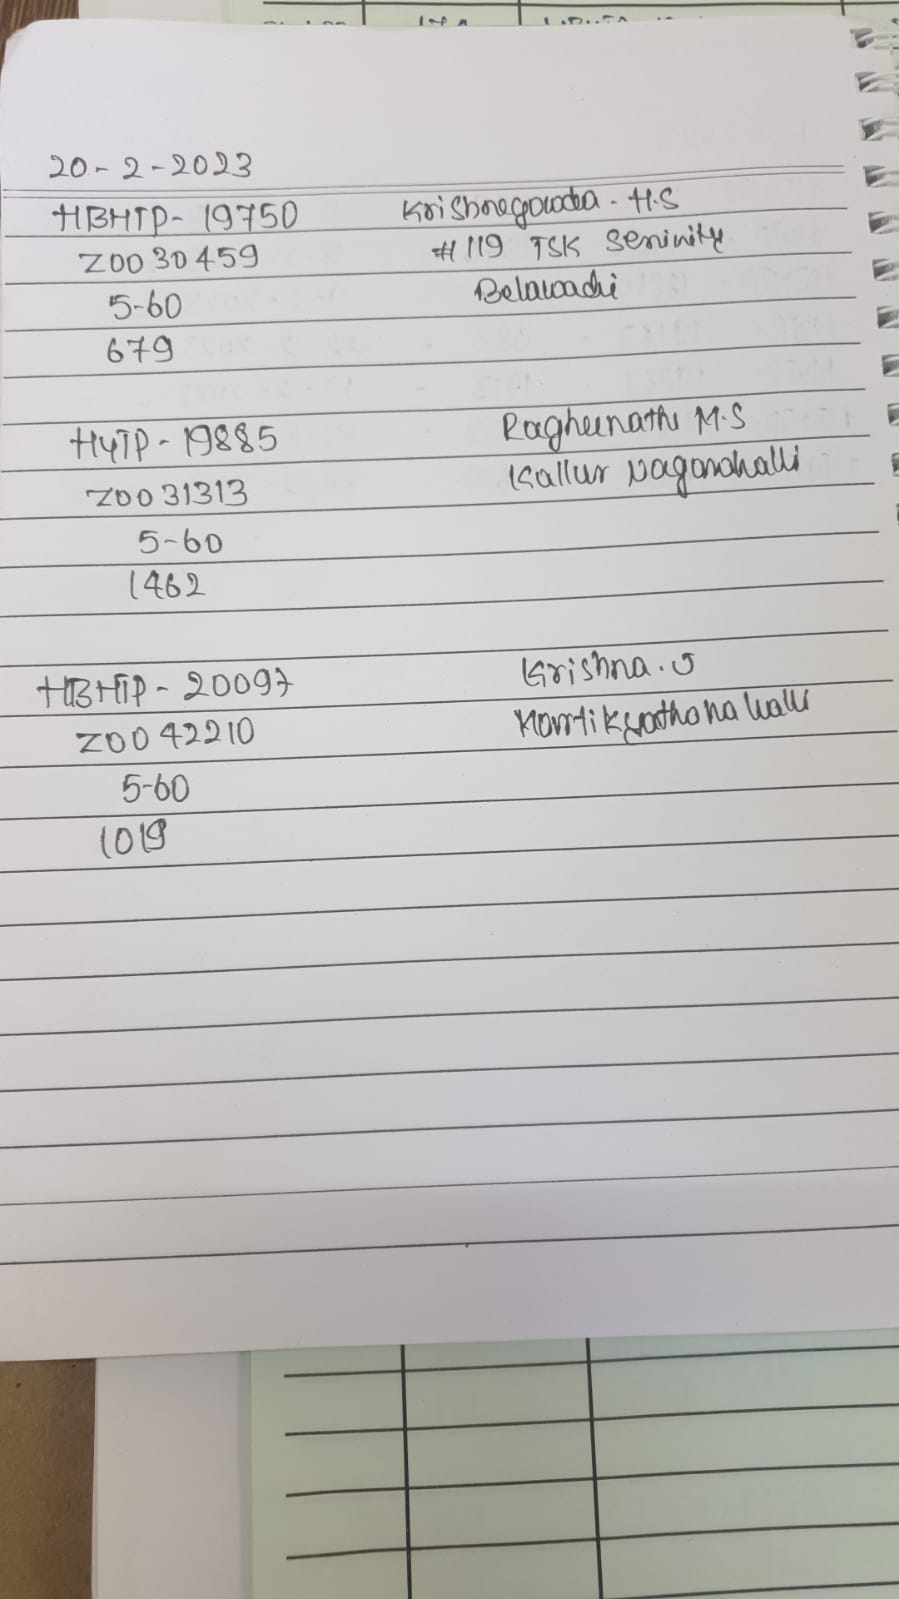 20-2-2023
HBHTP- 19750 Krishnegowda - H.S
Z0030459 # 119 TSK Serinity
5-60 Belawadi
679
HYTP - 19885 Raghunath M.S
Z0031313 Kallur Naganahalli
5-60
1462
HBHTP - 20097 Krishna.J
Z0042210
5-60
1019